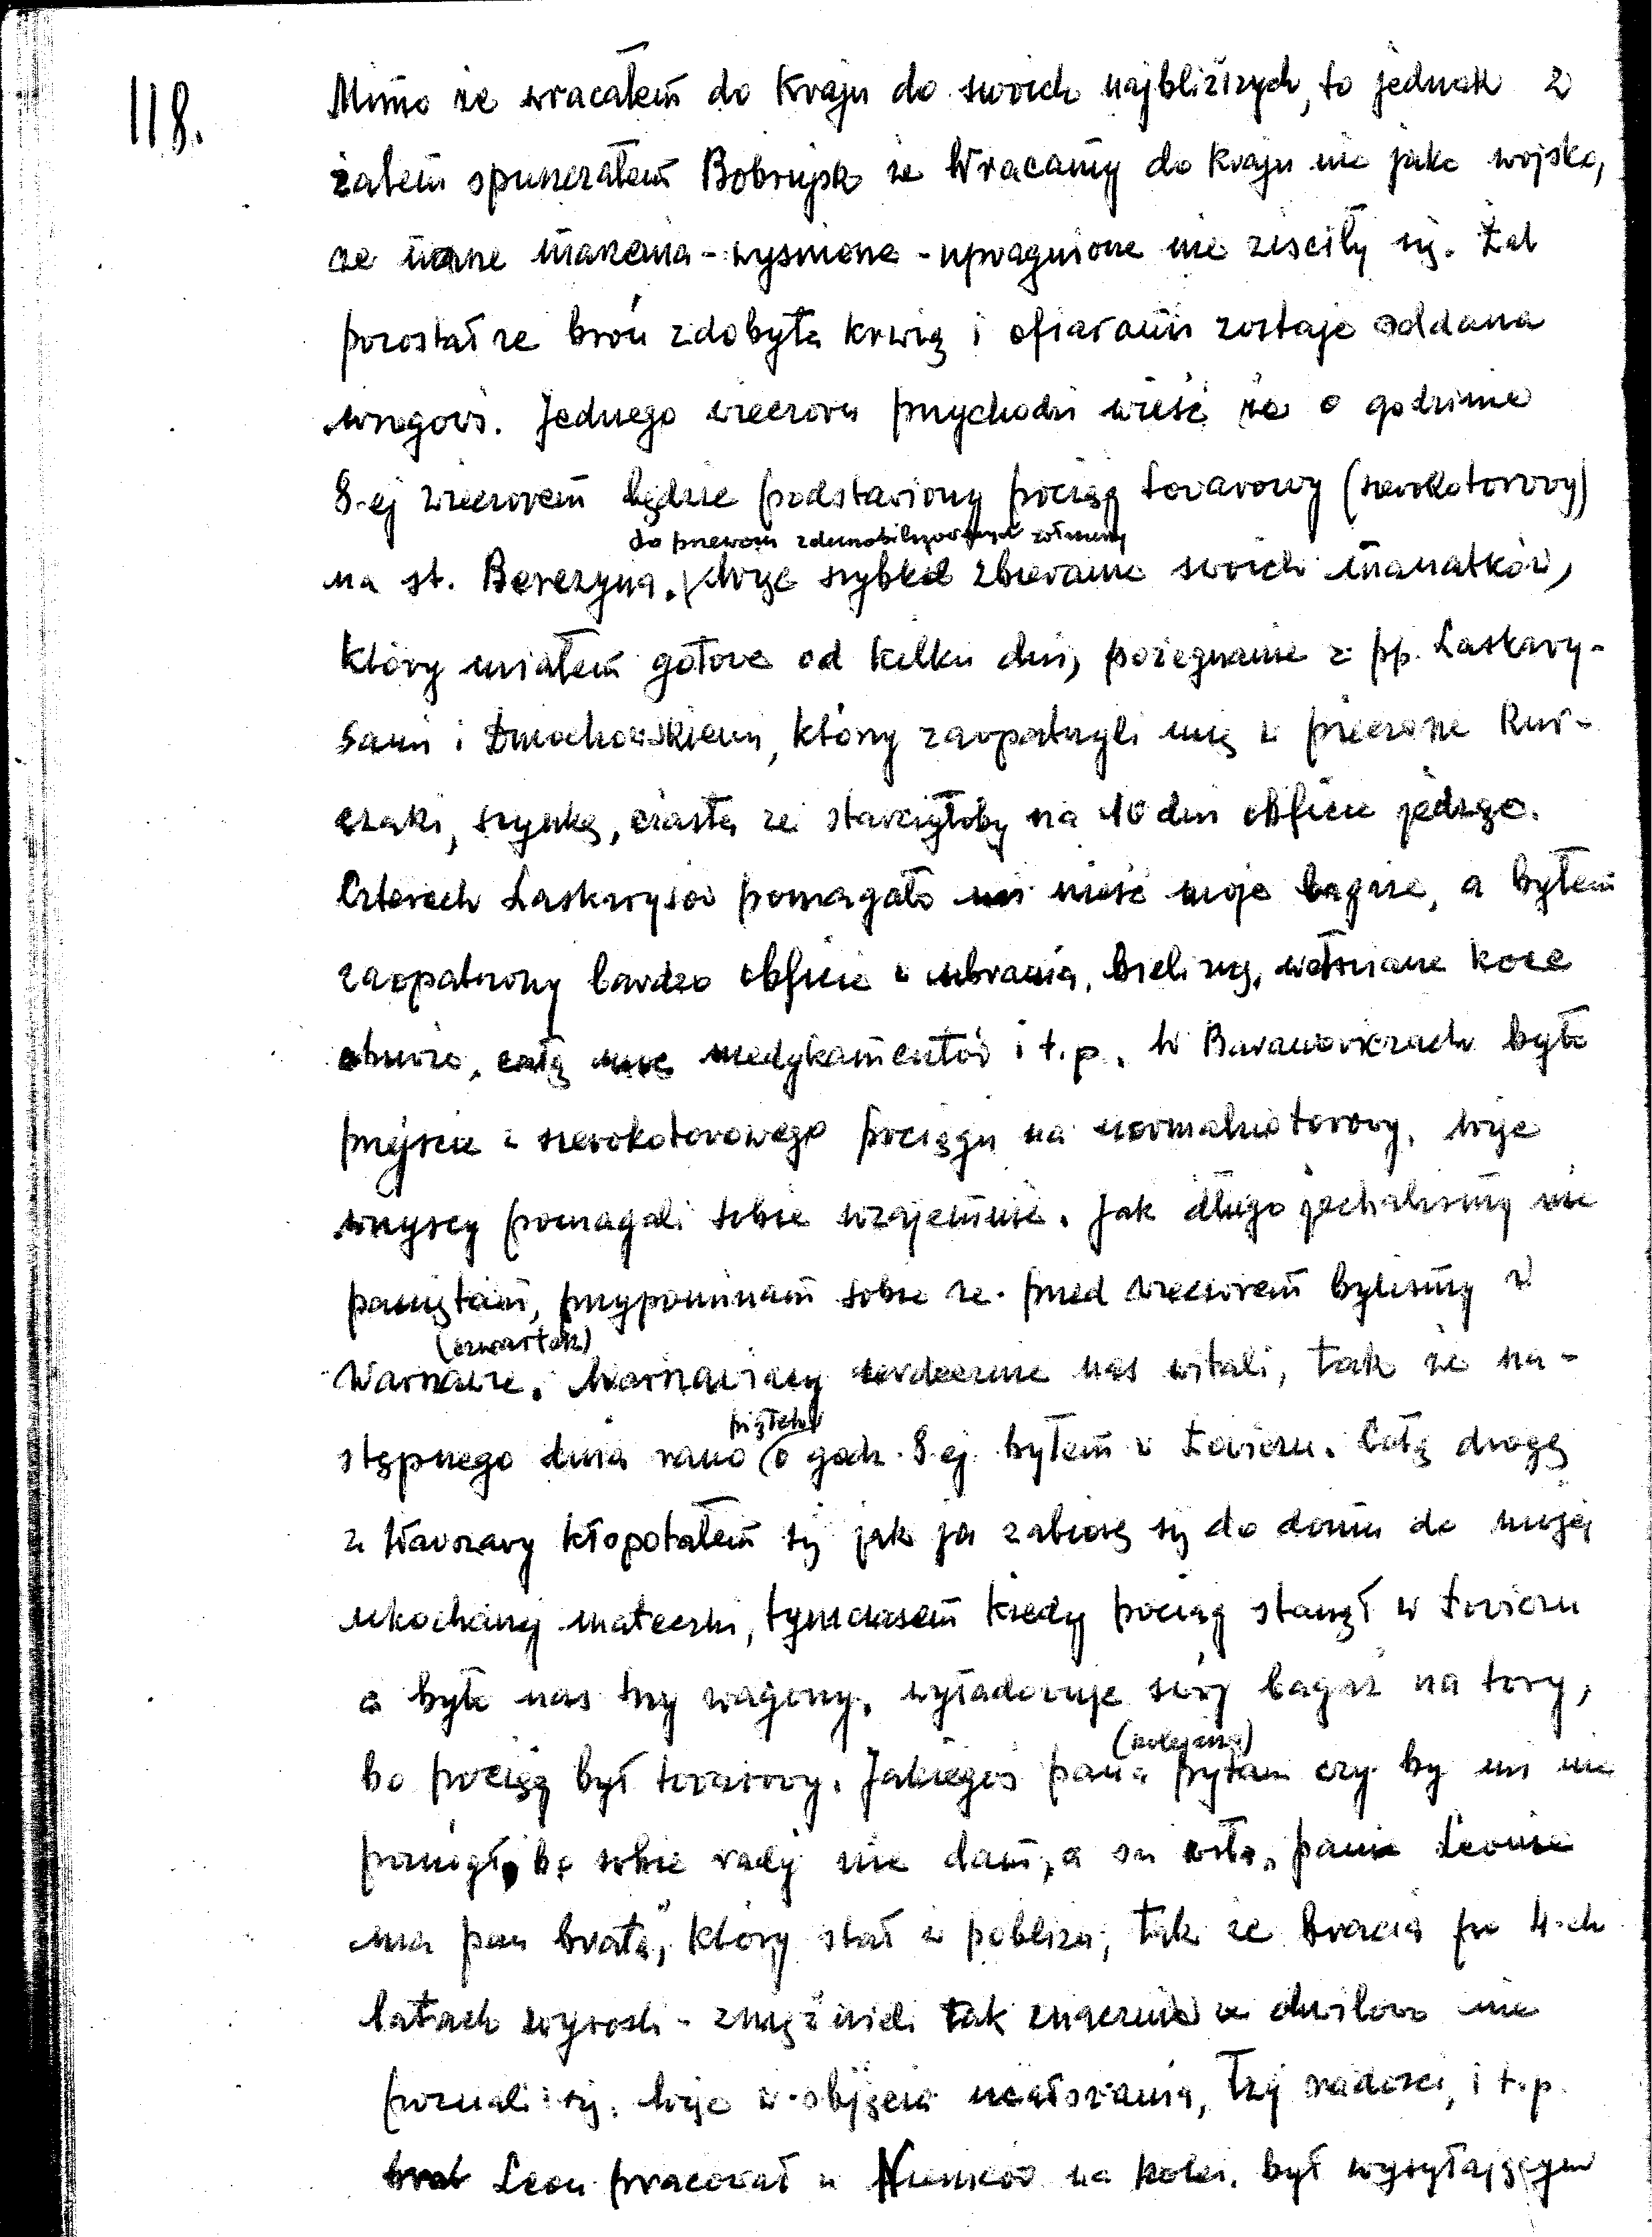 118.
Mimo że wracałem do Kraju do swoich najbliższych, to jednak z
żalem opuszczałem Bobrujsk że Wracamy do kraju nie jako wojsko,
że nasze marzenia - wysnione - upragnione nie ziściły się. Żal
pozostał że broń zdobyta krwią i ofiarami zostaje oddana
wrogowi. Jednego wieczoru przychodzi wieść że o godzinie
8-ej wieczorem będzie podstawiony pociąg towarowy (szerokotorowy)
do przewozu zdemobilizowanych żołnierzy
na st. Berezyna. Więc szybkie zbieranie swoich manatków,
który miałem gotowe od kilku dni, pożegnanie z pp. Laskary-
sami i Dmochowskiemi, którzy zaopatrzyli mię w pieczone Kur-
czaki, szynkę, ciasta że starczyłoby na 10 dni obficie jedząc.
Czterech Laskarysów pomagało mi nieść moje bagaże, a byłem
zaopatrzony bardzo obficie w ubrania, bieliznę, wełniane koce
obuwie, całą moc medykamentów i t.p. W Baranowiczach było
przejście z szerokotorowego pociągu na normalnotorowy, więc
wszyscy pomagali sobie wzajemnie. Jak długo jechaliśmy nie
pamiętam, przypominam sobie że przed wieczorem byliśmy w
(czwartek)
Warszawie. Warszawiacy serdecznie nas witali, tak że na-
piątek
stępnego dnia rano o godz. 8-ej byłem w Łowiczu. Całą drogę
z Warszawy kłopotałem się jak ja zabiorę się do domu do mojej
ukochanej mateczki, tymczasem kiedy pociąg stanął w Łowiczu
a było nas trzy wagony, wyładowuje swój bagaż na tory,
(kolejarza)
bo pociąg był towarowy. Jakiegoś pana pytam czy by mi nie
pomógł, bo sobie rady nie dam, a on woła, panie Leonie
ma pan brata," który stał w pobliżu, tak że bracia po 4-ch
latach wyrośli - zmężnieli tak znacznie że chwilowo nie
poznali się. Więc w objęcia ucałowania, łzy radości, i t.p.
brat Leon pracował u Niemców na kolei, był wysyłającym